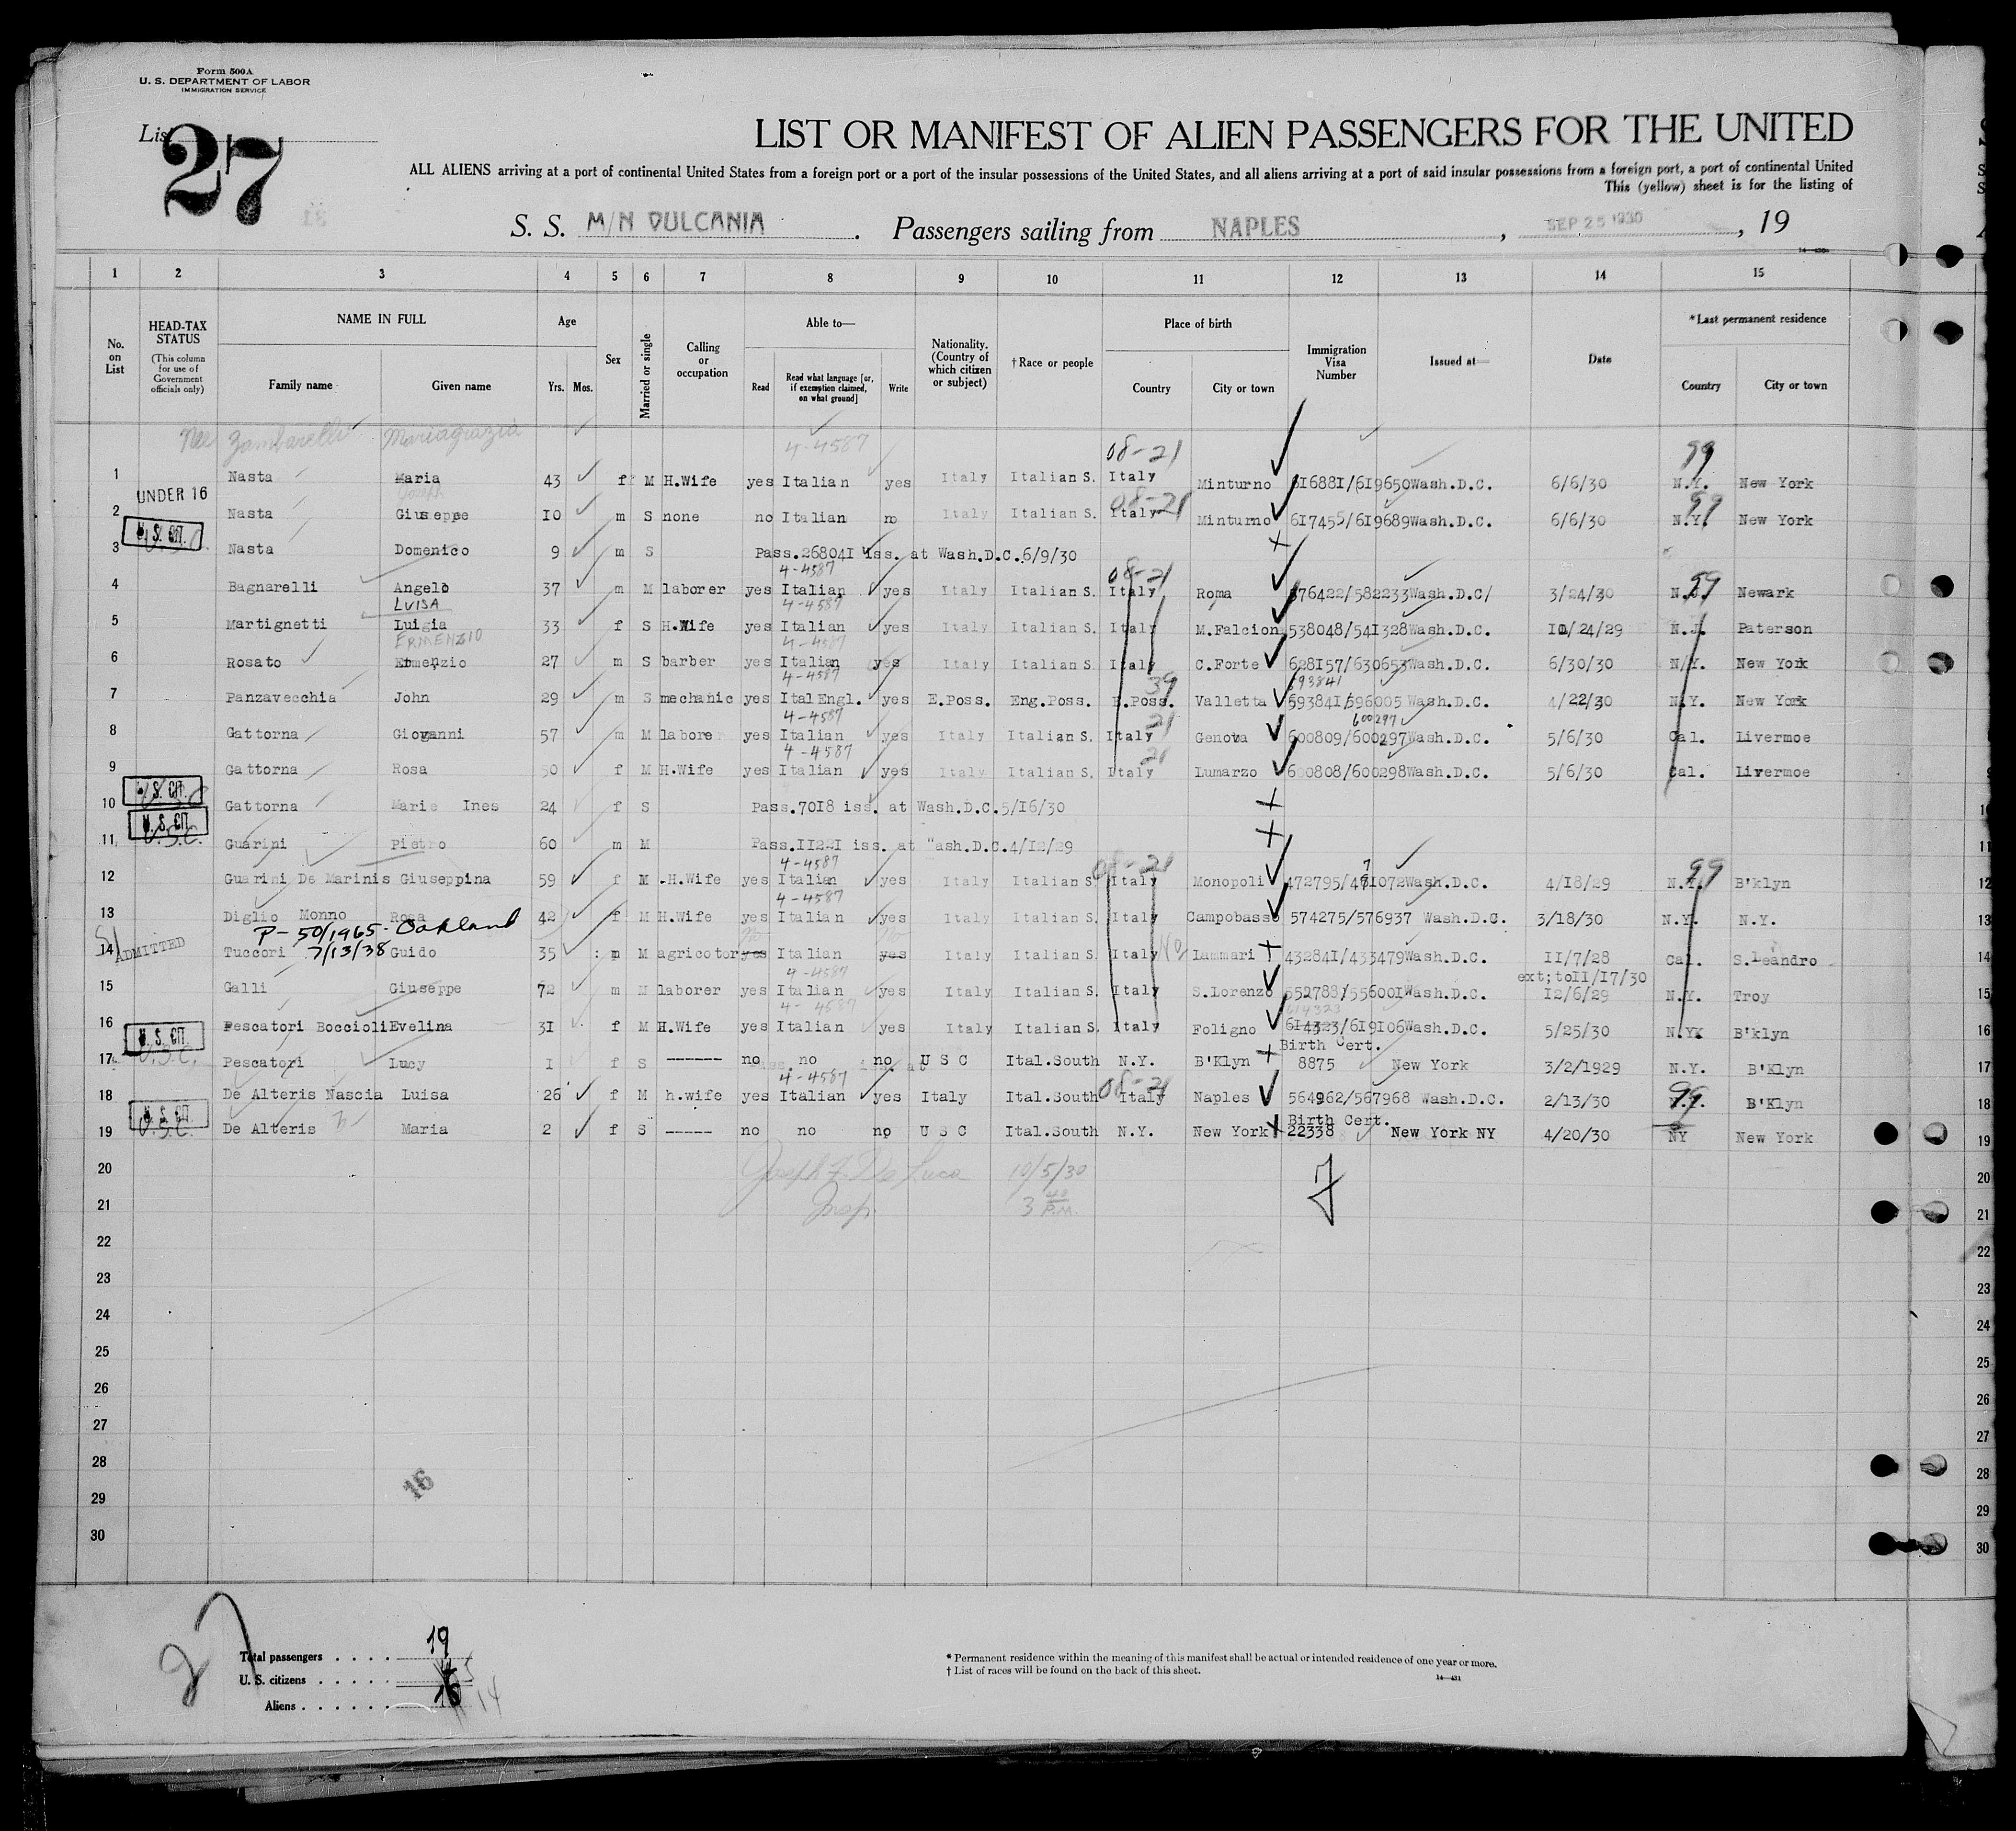 Form 500A
U. S. DEPARTMENT OF LABOR
IMMIGRATION SERVICE
List 27
LIST OR MANIFEST OF ALIEN PASSENGERS FOR THE UNITED
ALL ALIENS arriving at a port of continental United States from a foreign port or a port of the insular possessions of the United States, and all aliens arriving at a port of said insular possessions from a foreign port, a port of continental United
This (yellow) sheet is for the listing of
S. S. M/N VULCANIA. Passengers sailing from NAPLES, SEP 25 1930, 19
1 2 3 4 5 6 7 8 9 10 11 12 13 14 15
No. on List
HEAD-TAX STATUS (This column for use of Government officials only)
NAME IN FULL Family name Given name
Age Yrs. Mos.
Sex
Married or single
Calling or occupation
Able to— Read Read what language [or, if exemption claimed, on what ground] Write
Nationality. (Country of which citizen or subject)
†Race or people
Place of birth Country City or town
Immigration Visa Number
Issued at—
Date
*Last permanent residence Country City or town
Nee Zambarelli Mariagrazia 4-4587 08-21 99
1 Nasta Maria 43 f M H.Wife yes Italian yes Italy Italian S. Italy Minturno 616881/619650 Wash.D.C. 6/6/30 N.Y. New York
UNDER 16 Joseph 08-21 99
2 Nasta Giuseppe 10 m S none no Italian no Italy Italian S. Italy Minturno 617455/619689 Wash.D.C. 6/6/30 N.Y. New York
U. S. CIT.
3 Nasta Domenico 9 m S Pass.268041 iss. at Wash.D.C.6/9/30
4-4587 08-21 99
4 Bagnarelli Angelo 37 m M laborer yes Italian yes Italy Italian S. Italy Roma 576422/582233 Wash.D.C/ 3/24/30 N.J. Newark
LUISA 4-4587
5 Martignetti Luigia 33 f S H.Wife yes Italian yes Italy Italian S. Italy M.Falcion 538048/541328 Wash.D.C. 10/24/29 N.J. Paterson
ERMENZIO 4-4587
6 Rosato Ermenzio 27 m S barber yes Italian yes Italy Italian S. Italy C.Forte 628157/630653 Wash.D.C. 6/30/30 N.Y. New York
4-4587 39 593841
7 Panzavecchia John 29 m S mechanic yes Ital Engl. yes E.Poss. Eng.Poss. E.Poss. Valletta 593841/596005 Wash.D.C. 4/22/30 N.Y. New York
4-4587 21 600297
8 Gattorna Giovanni 57 m M labore yes Italian yes Italy Italian S. Italy Genova 600809/600297 Wash.D.C. 5/6/30 Cal. Livermoe
4-4587 21
9 Gattorna Rosa 50 f M H.Wife yes Italian yes Italy Italian S. Italy Lumarzo 600808/600298 Wash.D.C. 5/6/30 Cal. Livermoe
U. S. CIT.
10 Gattorna Marie Ines 24 f S Pass.7018 iss. at Wash.D.C.5/16/30
U. S. CIT. U.S.C.
11 Guarini Pietro 60 m M Pass.11221 iss. at "ash.D.C.4/12/29
4-4587 08-21 7 99
12 Guarini De Marinis Giuseppina 59 f M .H.Wife yes Italian yes Italy Italian S. Italy Monopoli 472795/471072 Wash.D.C. 4/18/29 N.Y. B'klyn
4-4587
13 Diglio Monno Rosa 42 f M H.Wife yes Italian yes Italy Italian S. Italy Campobasso 574275/576937 Wash.D.C. 3/18/30 N.Y. N.Y.
P-50/1965- Oakland
SI ADMITTED 7/13/38 no no
14 Tuccori Guido 35 m M agricotor yes Italian yes Italy Italian S. Italy Lammari 432841/433479 Wash.D.C. 11/7/28 Cal. S.Leandro
4-4587 ext;to11/17/30
15 Galli Giuseppe 72 m M laborer yes Italian yes Italy Italian S. Italy S.Lorenzo 552788/556001 Wash.D.C. 12/6/29 N.Y. Troy
4-4587 614323
16 Pescatori Boccioli Evelina 31 f M H.Wife yes Italian yes Italy Italian S. Italy Foligno 614323/619106 Wash.D.C. 5/25/30 N.Y. B'klyn
U. S. CIT. U.S.C. Birth Cert.
17 Pescatori Lucy 1 f S ------ no no no U S C Ital.South N.Y. B'Klyn 8875 New York 3/2/1929 N.Y. B'Klyn
4-4587 08-21 99
18 De Alteris Nascia Luisa 26 f M h.wife yes Italian yes Italy Ital.South Italy Naples 564962/567968 Wash.D.C. 2/13/30 N.Y. B'Klyn
U. S. CIT. U.S.C. Birth Cert.
19 De Alteris Maria 2 f S ----- no no no U S C Ital.South N.Y. New York 22338 New York NY 4/20/30 NY New York
20 Joseph F. De Luca 10/5/30
21 Insp. 3 40 P.M.
22
23
24
25
26
27
28
29
30
16
27
Total passengers . . . . 19
U. S. citizens . . . . . 5
Aliens . . . . . . 14
* Permanent residence within the meaning of this manifest shall be actual or intended residence of one year or more.
† List of races will be found on the back of this sheet.
14—431